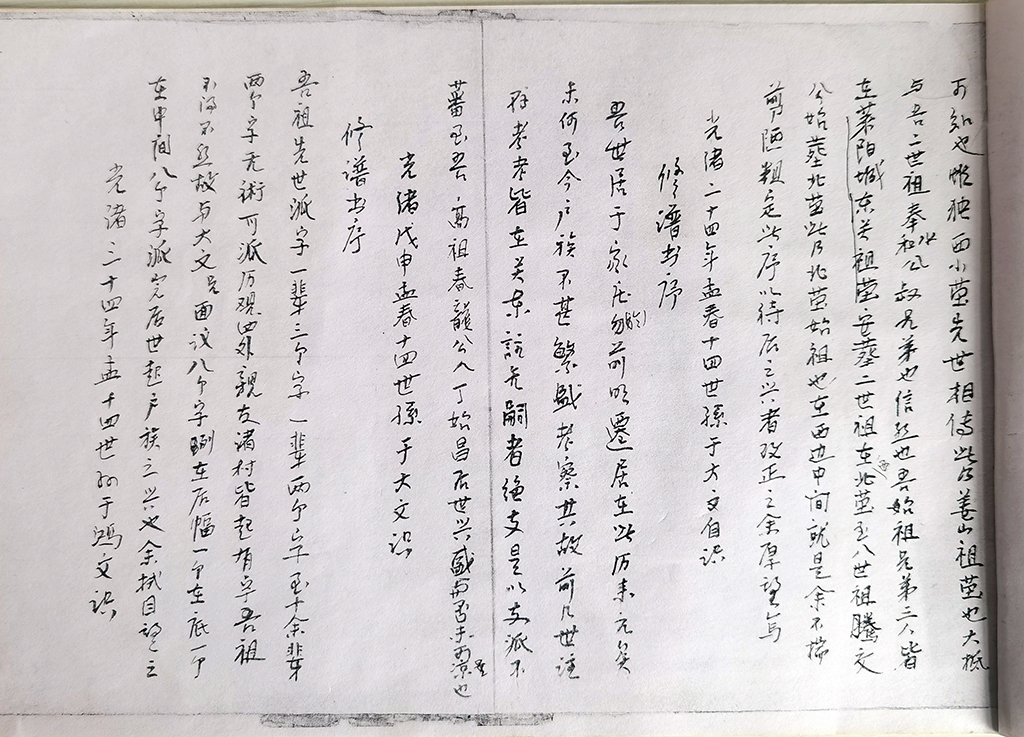 可知也惟独西小茔先世相传此乃姜山祖茔也大概
与吾二世祖奉祀公叔兄弟也信然也吾始祖兄弟二人皆
在莱阳城东关祖茔安葬二世祖在北茔至八世祖腾文
公始葬北茔此乃北茔始祖也在西边中间就是余不揣
剪陋粗定此序以待后之兴者改正之余厚望焉
光绪二十四年孟春十四世孫于大文自识
修谱书序
吾世居于家庄前明遷居在此历来元矣
未何至今户族不甚繁盛考察其故前几世谨
存老者皆在关东認无嗣者绝支是以支派不
蕃至吾高祖春龍公人丁始昌后世兴盛与否未可谅也
光绪戊申孟春十四世孫于大文识
修谱书序
吾祖先世派字一辈三个字一辈两个字至十余辈
两个字无術可派历观四外親友诸村皆起有字吾祖
不得不然故与大文兄面议八个字列在后幅一个在底一个
在中间八个字派完后世起户族之兴也余拭目望之
光绪三十四年孟十四世孙于鸿文识